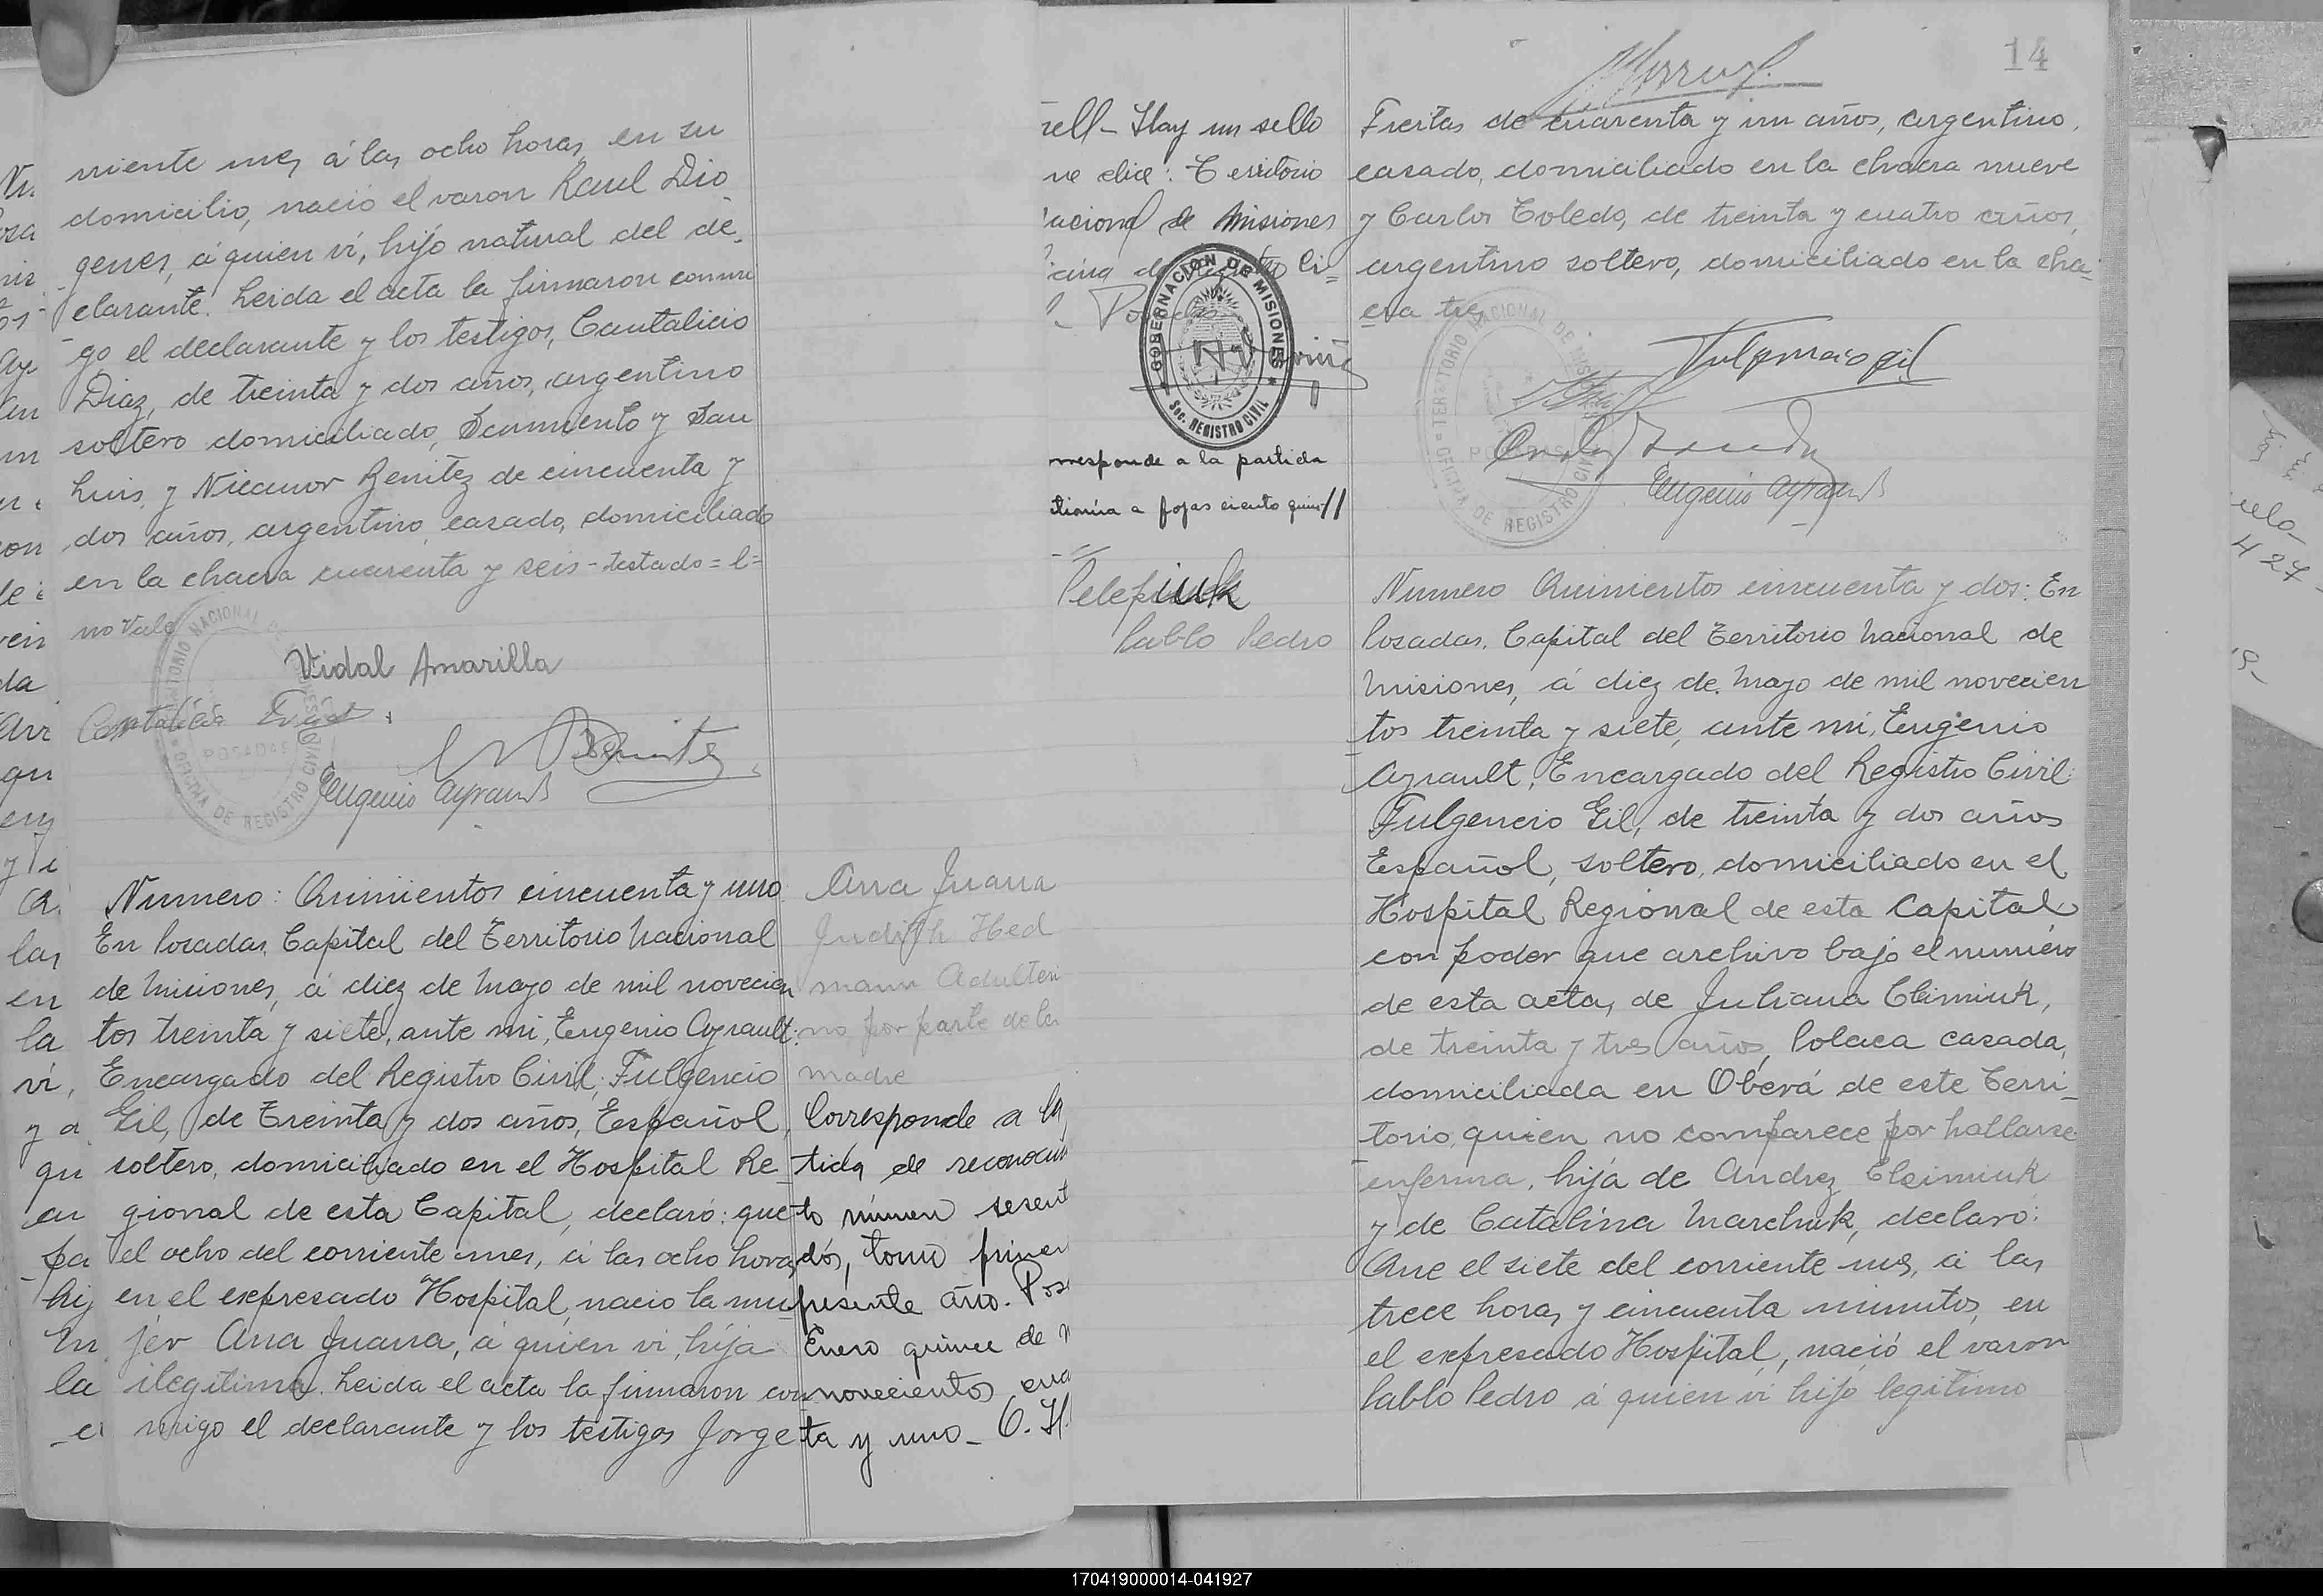 niente mes, á las ocho horas, en su
domicilio, nació el varon Raul Dio
genes, á quien ví, hijo natural del de-
clarante. Leida el acta la firmaron conmi
go el declarante y los testigos, Cantalicio
Diaz, de treinta y dos años, argentino
soltero domiciliado, Sarmiento y San
Luis, y Nicanor Benitez de cincuenta y
dos años, argentino, casado, domiciliado
en la chacra cuarenta y seis - testado = l =
no Vale
TERRITORIO NACIONAL DE MISIONES
POSADAS
OFICINA DE REGISTRO CIVIL
Vidal Amarilla
Cantalicio Diaz
N Benitez
Eugenio Ayrault
Numero: Quinientos cincuenta y uno
En Posadas, Capital del Territorio Nacional
de Misiones, á diez de Mayo de mil novecien
tos treinta y siete, ante mi, Eugenio Ayrault:
Encargado del Registro Civil; Fulgencio
Gil, de Treinta y dos años, Español,
soltero, domiciliado en el Hospital Re-
gional de esta Capital, declaró: que
el ocho del corriente mes, á las ocho horas
en el expresado Hospital, nacio la mu-
jer Ana Juana, á quien vi, hija
ilegitima. Leida el acta la firmaron con
migo el declarante y los testigos Jorge
Ana Juana
Judith Hed
mann Adulteri
no por parte de la
madre
Corresponde a la
tida de reconocim
to número sesent
dós, tomo primer
presente año. Pos
Enero quince de
novecientos cua
ta y uno_ O. H.
rell_ Hay un sello
ue dice: Territorio
acional de Misiones
cina de Registro Ci=
l_ Posadas
GOBERNACIÓN DE MISIONES
Sec. REGISTRO CIVIL
rresponde a la partida
tionia a fojas ciento quin//
Pelepiuk
Pablo Pedro
14
Freitas de cuarenta y un años, argentino,
casado, domiciliado en la chacra nueve
y Carlos Toledo, de treinta y cuatro años,
argentino soltero, domiciliado en la cha-
cra tres
TERRITORIO NACIONAL DE MISIONES
POSADAS
OFICINA DE REGISTRO CIVIL
Fulgencio Gil
Eugenio Ayrault
Numero Quinientos cincuenta y dos: En
Posadas, Capital del Territorio Nacional de
Misiones, á diez de Mayo de mil novecien
tos treinta y siete, ante mi, Eugenio
Ayrault, Encargado del Registro Civil:
Fulgencio Gil, de treinta y dos años
Español, soltero, domiciliado en el
Hospital Regional de esta Capital
con poder que archivo bajo el numero
de esta acta, de Juliana Climiuk,
de treinta y tres años, Polaca casada,
domiciliada en Oberá de este Terri-
torio, quien no comparece por hallarse
enferma, hija de Andrez Climiuk
y de Catalina Marchuk, declaró:
Que el siete del corriente mes, á las
trece horas y cincuenta minutos, en
el expresado Hospital, nació el varon
Pablo Pedro á quien vi hijo legitimo
427
170419000014-041927